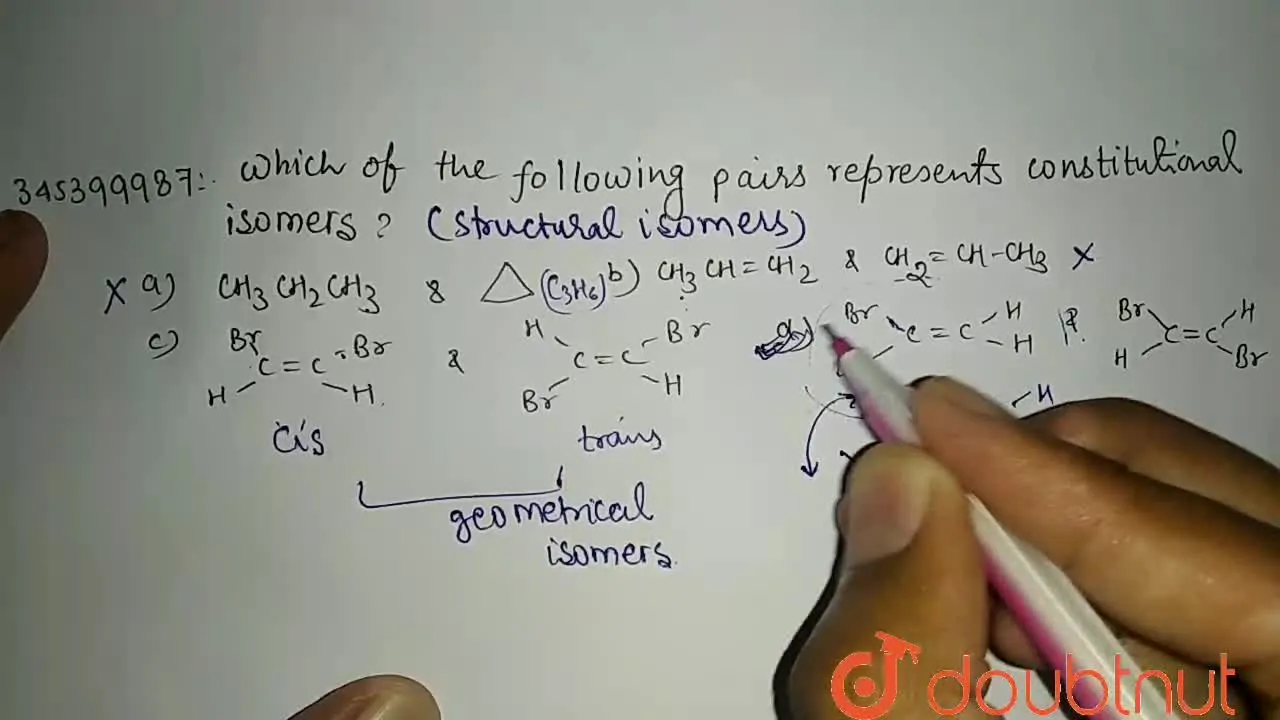 345399987:. Which of the following pairs represents constitutional
isomers? (structural isomers)
X a) CH3CH2CH3 & △ (C3H6) b) CH3CH=CH2 & CH2=CH-CH3 X
c) Br H C=C Br H & H Br C=C Br H d) Br C=C H H & Br H C=C H Br
H
cis trans
geometrical
isomers.
doubtnut